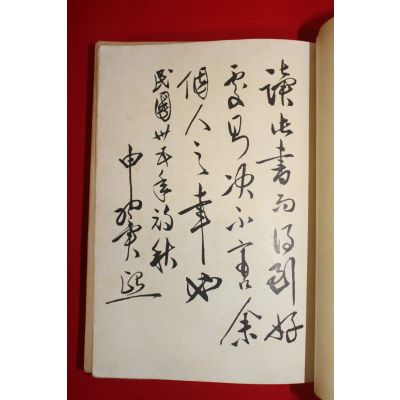 讀此書而得到好
處則決不啻余
個人之幸也
民國卅五年初秋
申翼熙